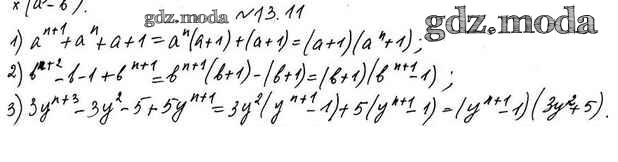 x(a-b).
gdz.moda №13.11 gdz.moda
1) aⁿ⁺¹+aⁿ+a+1=aⁿ(a+1)+(a+1)=(a+1)(aⁿ+1);
2) bⁿ⁺²-b-1+bⁿ⁺¹=bⁿ⁺¹(b+1)-(b+1)=(b+1)(bⁿ⁺¹-1);
3) 3yⁿ⁺³-3y²-5+5yⁿ⁺¹=3y²(yⁿ⁺¹-1)+5(yⁿ⁺¹-1)=(yⁿ⁺¹-1)(3y²+5).